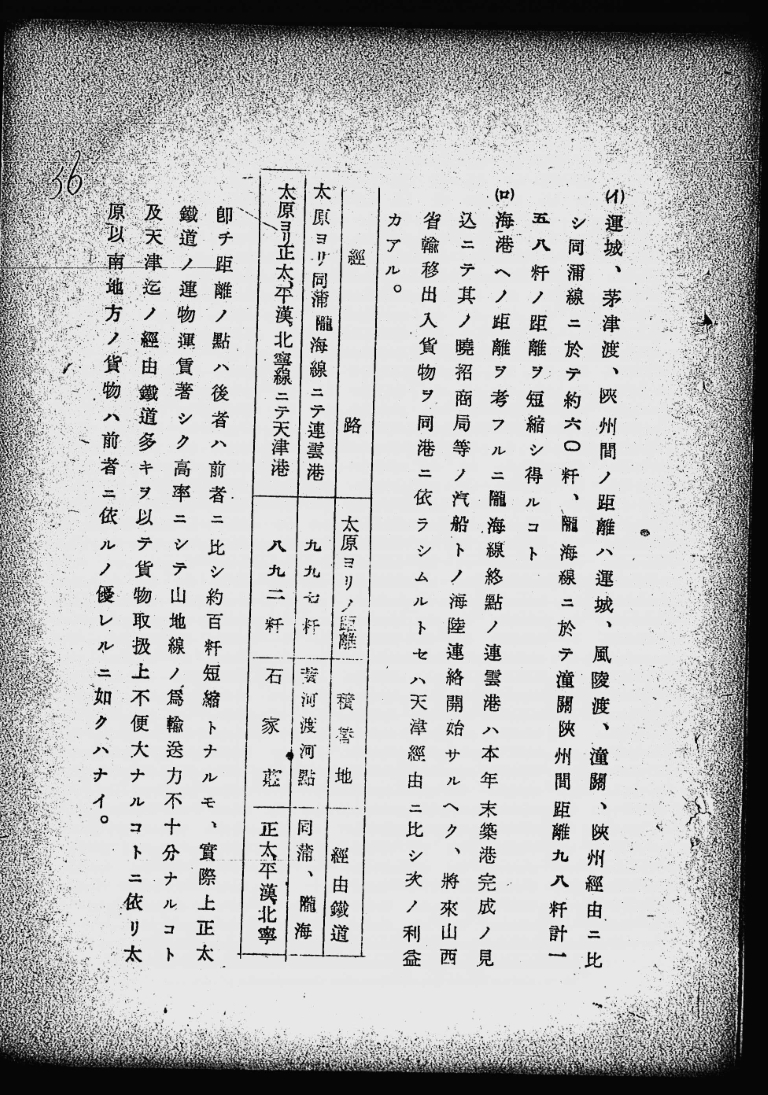 36
(イ)運城、茅津渡、陜州間ノ距離ハ運城、風陵渡、潼關、陜州經由ニ比
シ同蒲線ニ於テ約六〇粁、隴海線ニ於テ潼關陜州間距離九八粁計一
五八粁ノ距離ヲ短縮シ得ルコト
(ロ)海港ヘノ距離ヲ考フルニ隴海線終點ノ連雲港ハ本年末築港完成ノ見
込ニテ其ノ曉招商局等ノ汽船トノ海陸連絡開始サルヘク、將來山西
省輸移出入貨物ヲ同港ニ依ラシムルトセハ天津經由ニ比シ次ノ利益
カアル。
經路 太原ヨリノ距離 積替地 經由鐵道
太原ヨリ同蒲隴海線ニテ連雲港 九九七粁 黃河渡河點 同蒲、隴海
太原ヨリ正太、平漢、北寧線ニテ天津港 八九二粁 石家莊 正太、平漢、北寧
卽チ距離ノ點ハ後者ハ前者ニ比シ約百粁短縮トナルモ、實際上正太
鐵道ノ運物運賃著シク高率ニシテ山地線ノ爲輸送力不十分ナルコト
及天津迄ノ經由鐵道多キヲ以テ貨物取扱上不便大ナルコトニ依リ太
原以南地方ノ貨物ハ前者ニ依ルノ優レルニ如クハナイ。